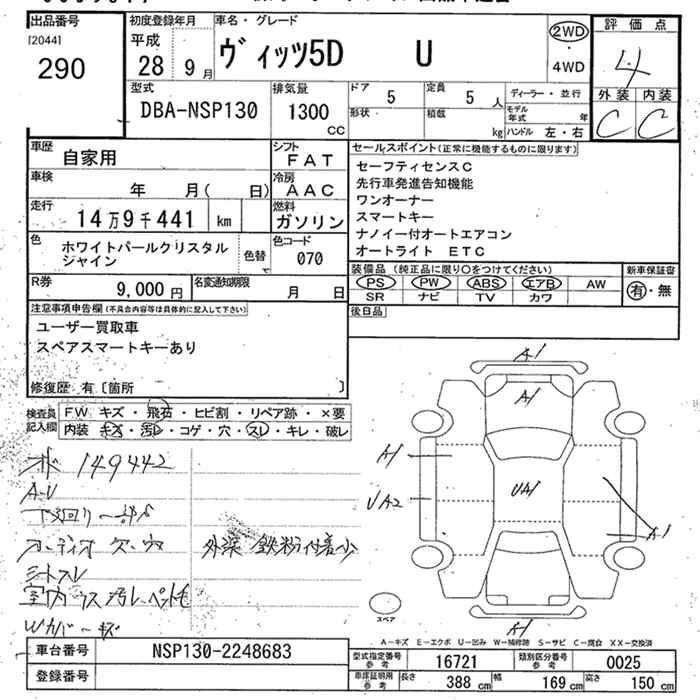 出品番号
[2044]
290
初度登録年月
平成
28 9月
車名・グレード
ヴィッツ5D U
2WD
・
4WD
評価点
4
外装 内装
C C
型式
DBA-NSP130
排気量
1300
CC
ドア
5
定員
5 人
形状
積載
kg
ディーラー・並行
モデル年式 年
ハンドル 左・右
車歴
自家用
シフト
FAT
車検
年 月( 日)
冷房
AAC
走行
14万9千441 km
燃料
ガソリン
色
ホワイトパールクリスタル
シャイン
色替
色コード
070
R券
9,000円
名変通知期限
月 日
セールスポイント(正常に機能するものに限ります)
セーフティセンスC
先行車発進告知機能
ワンオーナー
スマートキー
ナノイー付オートエアコン
オートライト ETC
装備品 (純正品に限り○をつけてください)
PS PW ABS エアB AW
SR ナビ TV カワ
新車保証書
有・無
後日品
注意事項申告欄(不具合内容等は具体的に記入して下さい)
ユーザー買取車
スペアスマートキーあり
修復歴 有〔箇所 〕
検査員
記入欄
FW キズ・飛石・ヒビ割・リペア跡・×要
内装 キズ・汚レ・コゲ・穴・スレ・キレ・破レ
149442
A-U
下廻り
シートスレ
室内 汚レ ペット毛
外装 鉄粉付着少
A1
A1
A1
UA2
UA1
A1
A1
スペア
A-キズ E-エクボ U-凹み W-補修跡 S-サビ C-腐食 XX-交換済
車台番号
NSP130-2248683
登録番号
型式指定番号
参考
16721
類別区分番号
参考
0025
車庫証明用
参考
長さ 388 cm 幅 169 cm 高さ 150 cm